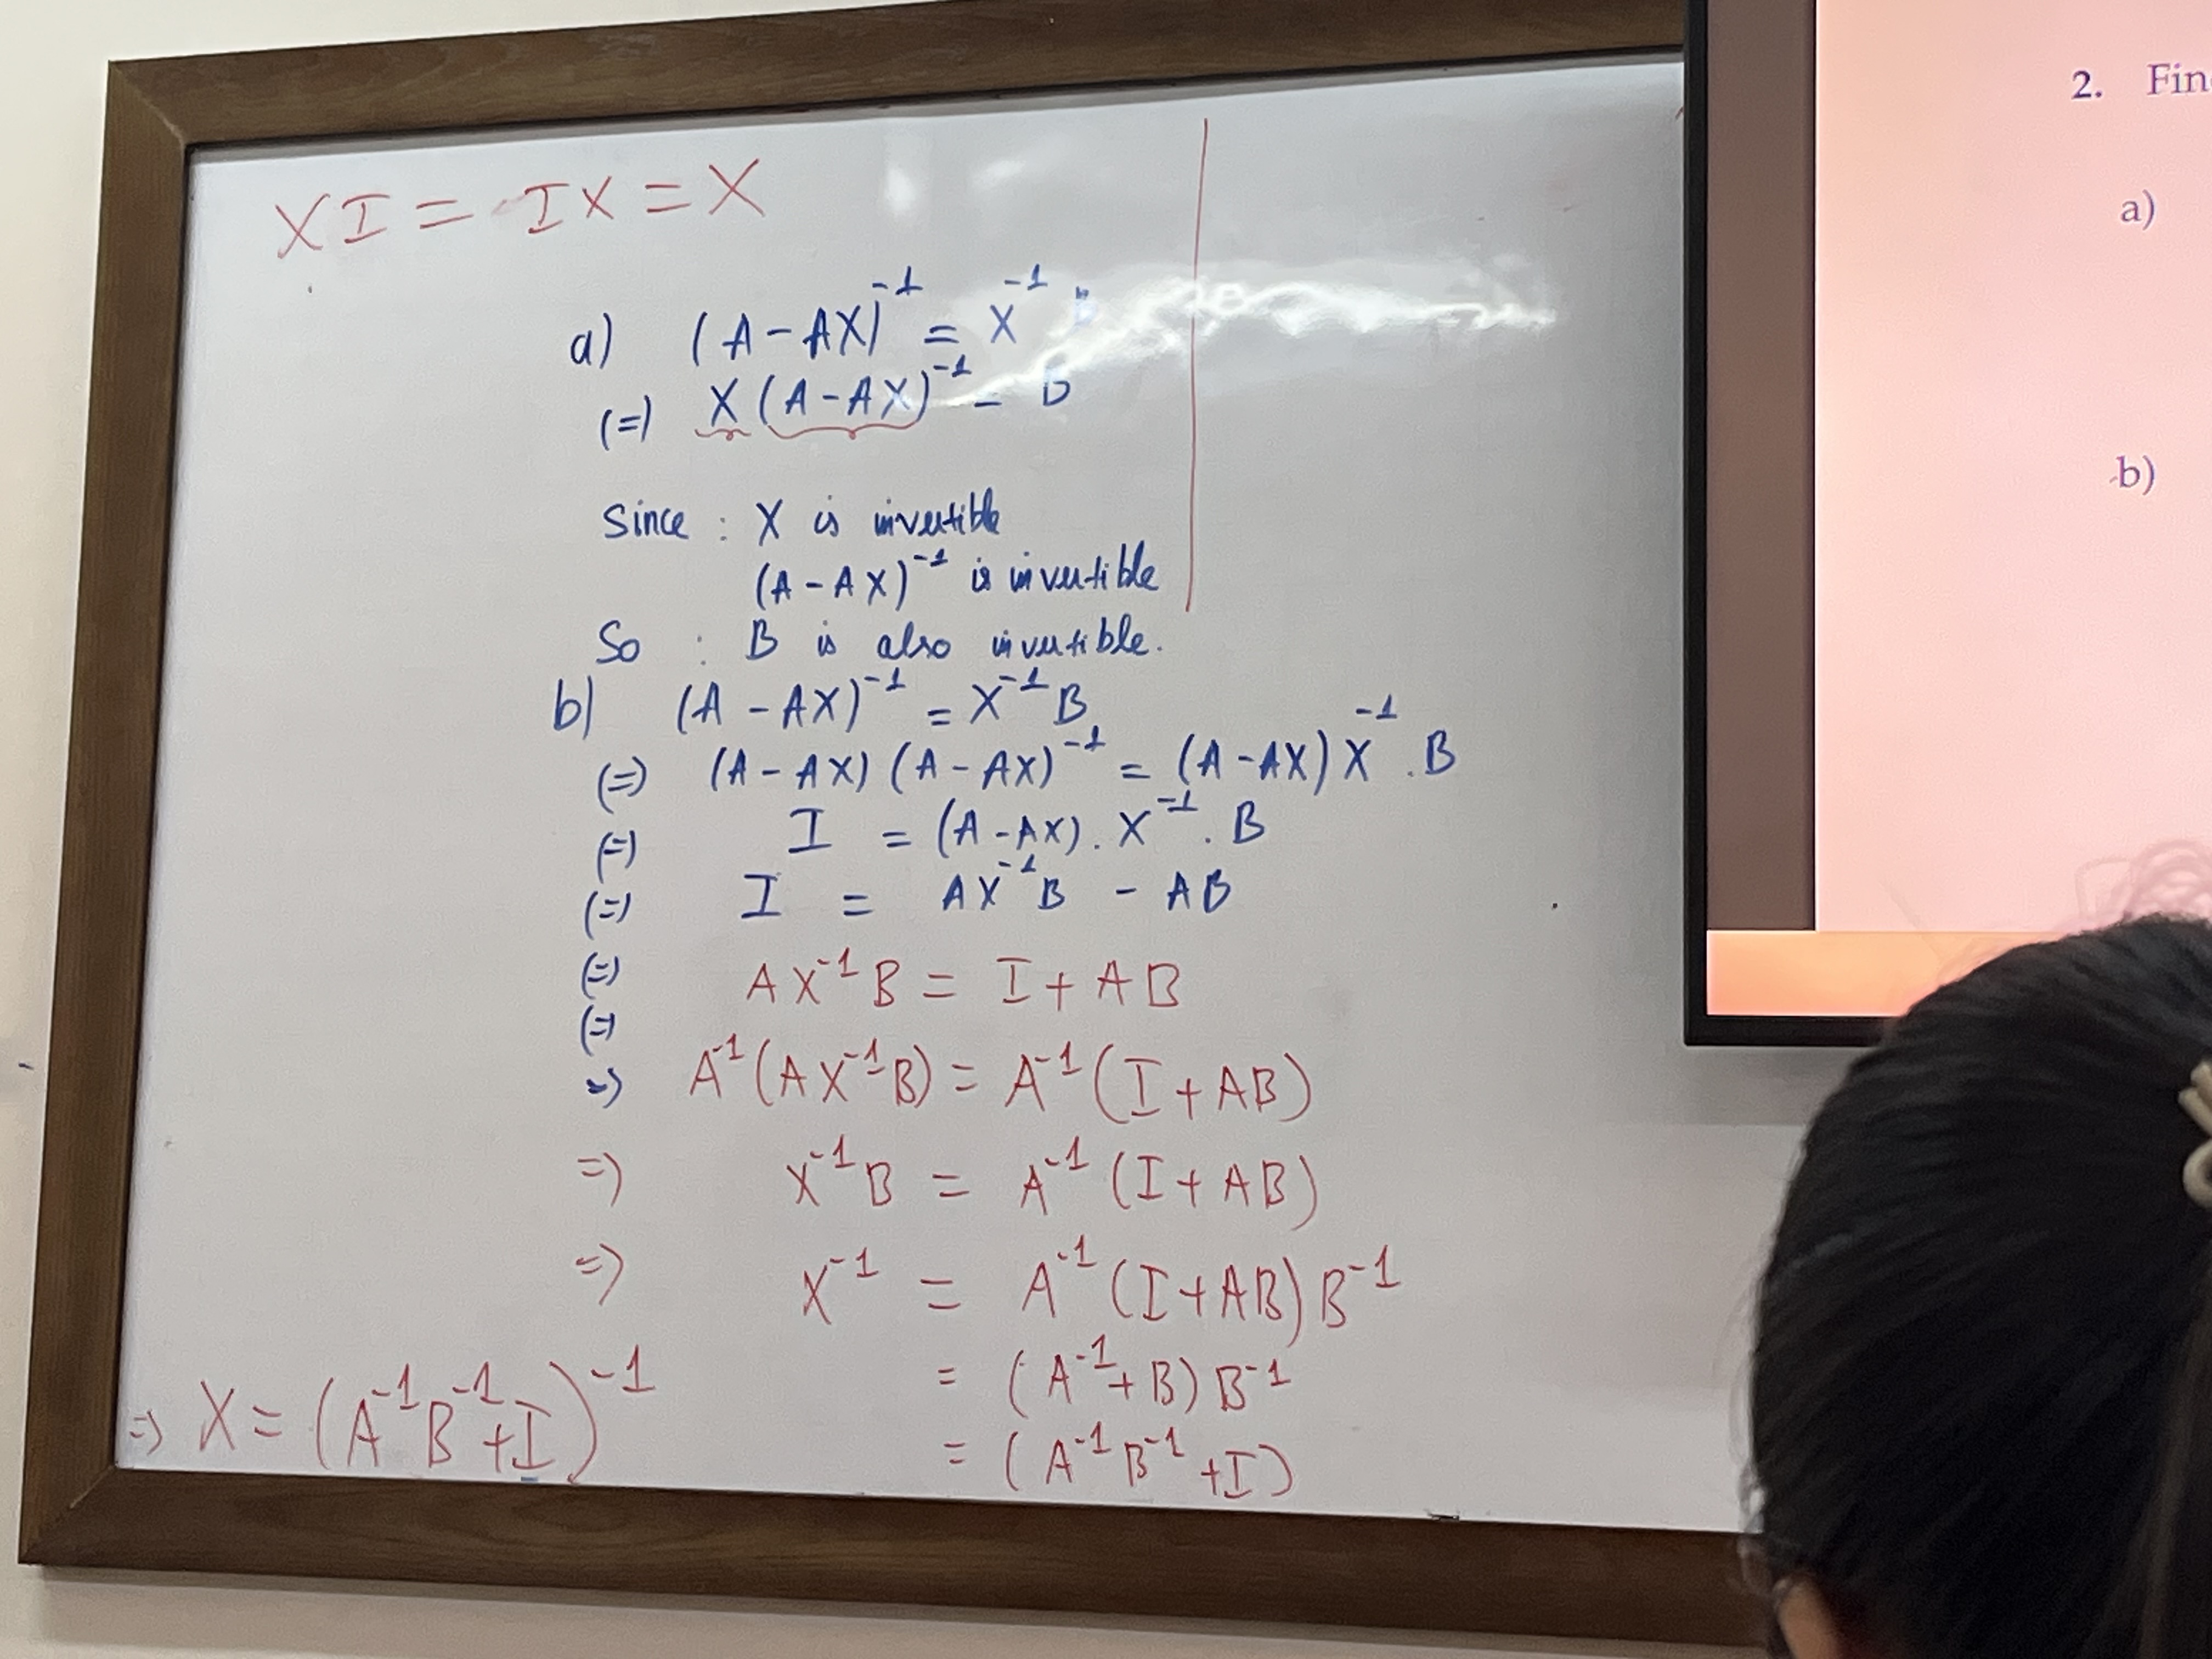 XI = IX = X
a) (A - AX)⁻¹ = X⁻¹ B
(=) X (A - AX)⁻¹ = B
Since : X is invertible
(A - AX)⁻¹ is invertible
So : B is also invertible.
b) (A - AX)⁻¹ = X⁻¹ B
(=) (A - AX) (A - AX)⁻¹ = (A - AX) X⁻¹ . B
(=) I = (A - AX) . X⁻¹ . B
(=) I = AX⁻¹B - AB
(=) AX⁻¹B = I + AB
(=)
=) A⁻¹(AX⁻¹B) = A⁻¹(I + AB)
=) X⁻¹B = A⁻¹(I + AB)
=) X⁻¹ = A⁻¹(I + AB)B⁻¹
= (A⁻¹ + B)B⁻¹
= (A⁻¹B⁻¹ + I)
=) X = (A⁻¹B⁻¹ + I)⁻¹
2. Fin
a)
b)